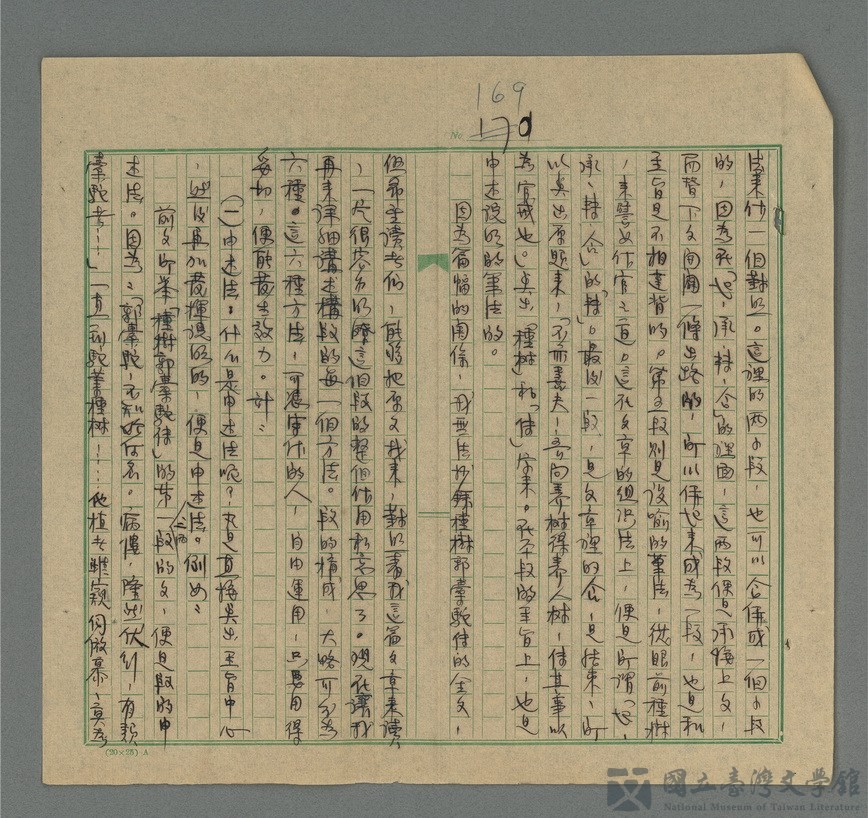 169
170
No.
法來作一個對照。這裡的兩小段,也可以合併成一個小段
的,因為在「起、承、轉、合」的裡面,這兩段便是承悟上文,
而替下文開闢一條出路的,所以併起來成為一段,也是和
主旨是不相違背的。第五段則是設喻的筆法,從眼前種樹
,來譬如作官之道。這在文章的組識法上,便是所謂「起、
承、轉、合」的「轉」。最後一段,是文章裡的合,是結束,所
以點出原題來,「不亦善夫!吾問養樹得養人樹,傳其事以
為官戒也。」點出「種樹」和「傳」字來。在本段的主旨上,也是
申述說明的筆法的。
因為篇幅的關係,我無法抄錄種樹郭橐駝傳的全文,
但希望讀者們,能夠把原文找來,對照著我這篇文章來讀
,一定很容易明瞭這個段的整個作用和意思了。現在讓我
再來詳細講述構段的每一個方法。段的構成,大略可分為
六種。這六種方法,可憑寫作的人,自由運用,只要用得
妥切,便能發生效力。計:
(一)申述法。什麼是申述法呢?就是直接點出主旨中心
,然後再加發揮說明的,便是申述法。例如:
前文所舉「種樹郭橐駝傳」的第一、二兩段的文,便是段的申
述法。因為:「郭橐駝,不知始何名。病僂,隆然伏行,有類
橐駝者……」一直到「駝業種樹……他植者雖窺伺傚慕,莫為
(20×25) A
國立臺灣文學館
National Museum of Taiwan Literature